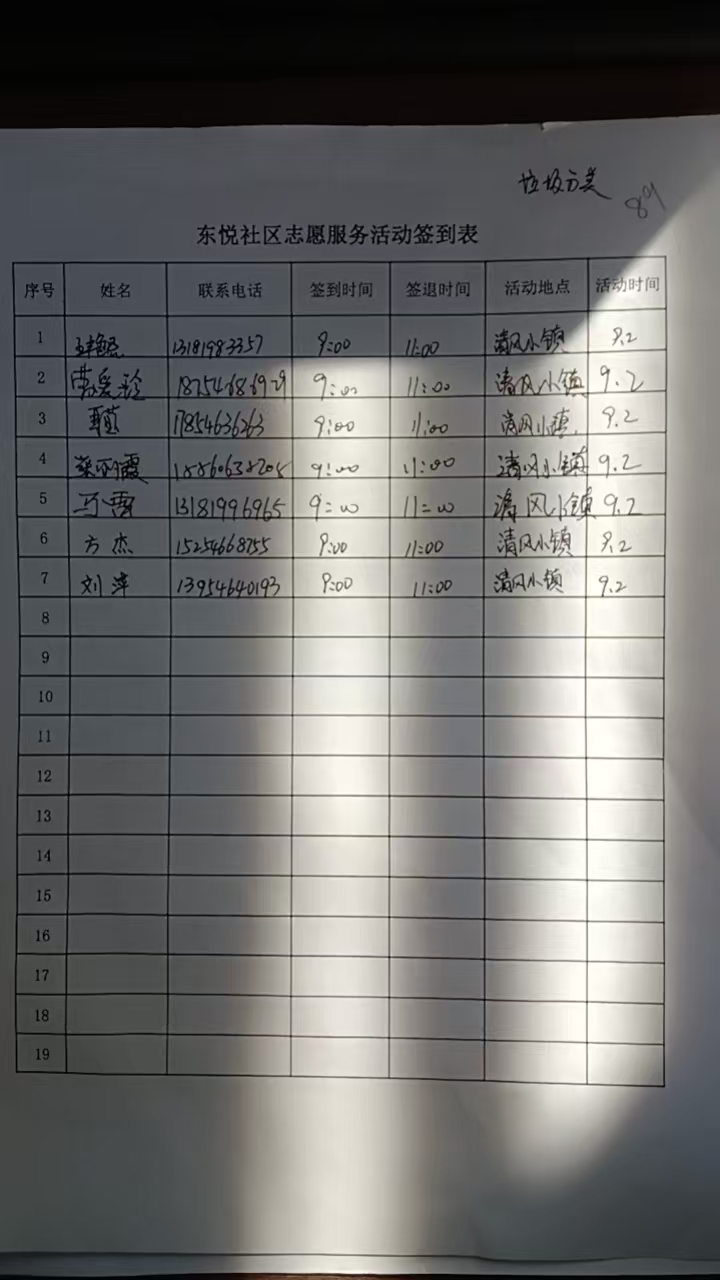 垃圾分类
89
东悦社区志愿服务活动签到表
序号 姓名 联系电话 签到时间 签退时间 活动地点 活动时间
1 13181983357 9:00 11:00 清风小镇 9.2
2 18754686929 9:00 11:00 清风小镇 9.2
3 17854636263 9:00 11:00 清风小镇 9.2
4 9:00 11:00 清风小镇 9.2
5 马雷 13181996965 9:00 11:00 清风小镇 9.2
6 方杰 15254668755 9:00 11:00 清风小镇 9.2
7 刘萍 13954640193 9:00 11:00 清风小镇 9.2
8
9
10
11
12
13
14
15
16
17
18
19